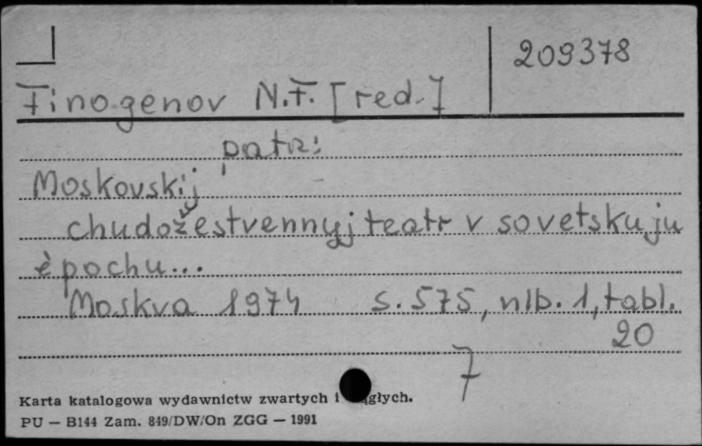 209378
Finogenov N.F. [red.]
patrz:
Moskovskij
chudožestvennyj teatr v sovetskuju
èpochu...
Moskva 1974 s. 575, nlb. 1, tabl.
20
7
Karta katalogowa wydawnictw zwartych i
PU — B144 Zam. 849/DW/On ZGG — 1991